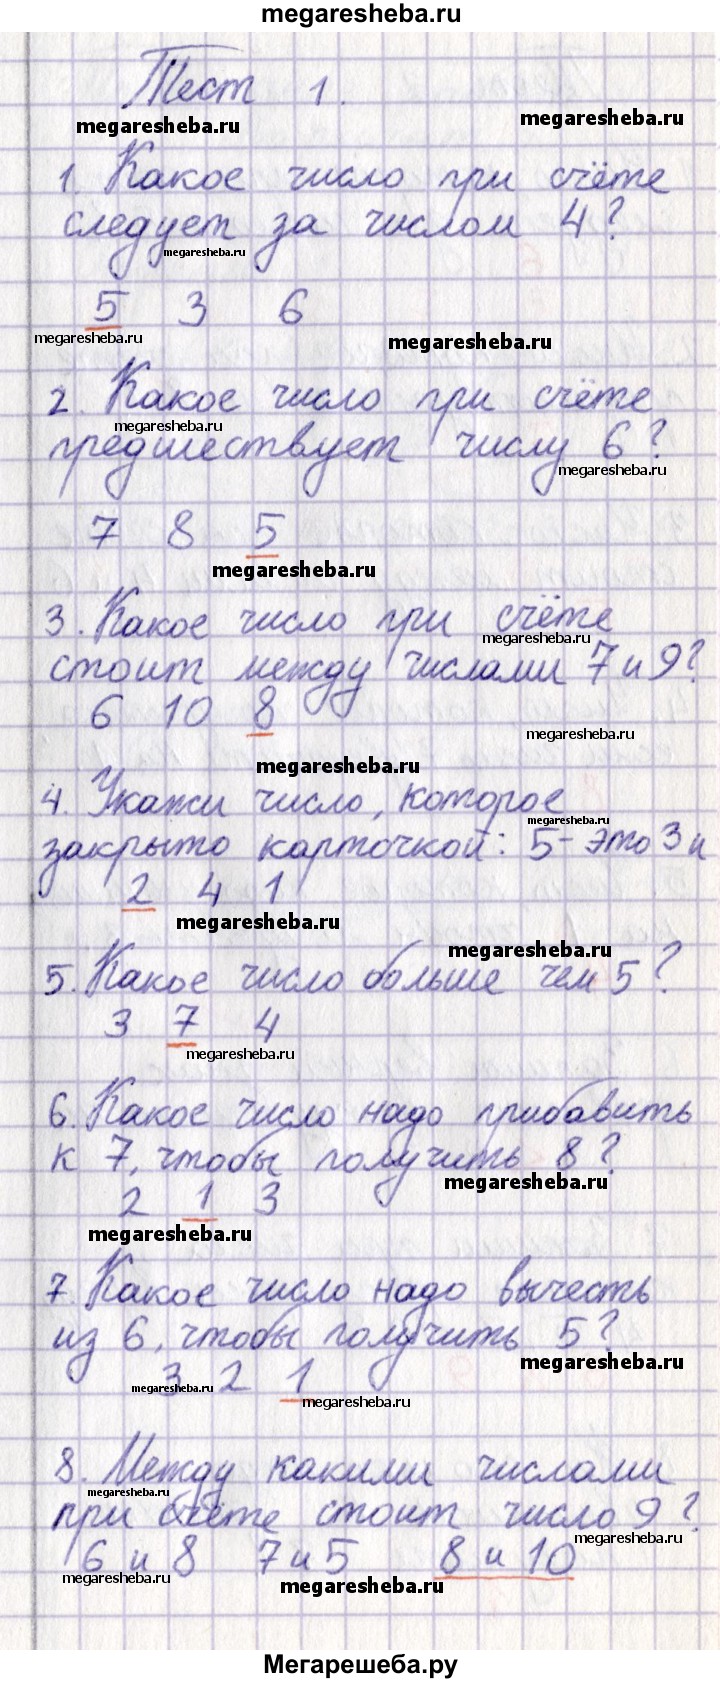 megaresheba.ru
Тест 1.
megaresheba.ru megaresheba.ru
1. Какое число при счёте
следует за числом 4?
megaresheba.ru
5 3 6
megaresheba.ru megaresheba.ru
2. Какое число при счёте
megaresheba.ru
предшествует числу 6?
megaresheba.ru
7 8 5
megaresheba.ru
3. Какое число при счёте
megaresheba.ru
стоит между числами 7 и 9?
6 10 8
megaresheba.ru
megaresheba.ru
4. Укажи число, которое
megaresheba.ru
закрыто карточкой: 5 - это 3 и
2 4 1
megaresheba.ru
megaresheba.ru
5. Какое число больше чем 5?
3 7 4
megaresheba.ru
6. Какое число надо прибавить
к 7, чтобы получить 8?
megaresheba.ru
2 1 3
megaresheba.ru
7. Какое число надо вычесть
из 6, чтобы получить 5?
megaresheba.ru
3 2 1
megaresheba.ru
megaresheba.ru
8. Между какими числами
megaresheba.ru
при счёте стоит число 9?
megaresheba.ru
6 и 8 7 и 5 8 и 10
megaresheba.ru
megaresheba.ru
Мегарешеба.ру